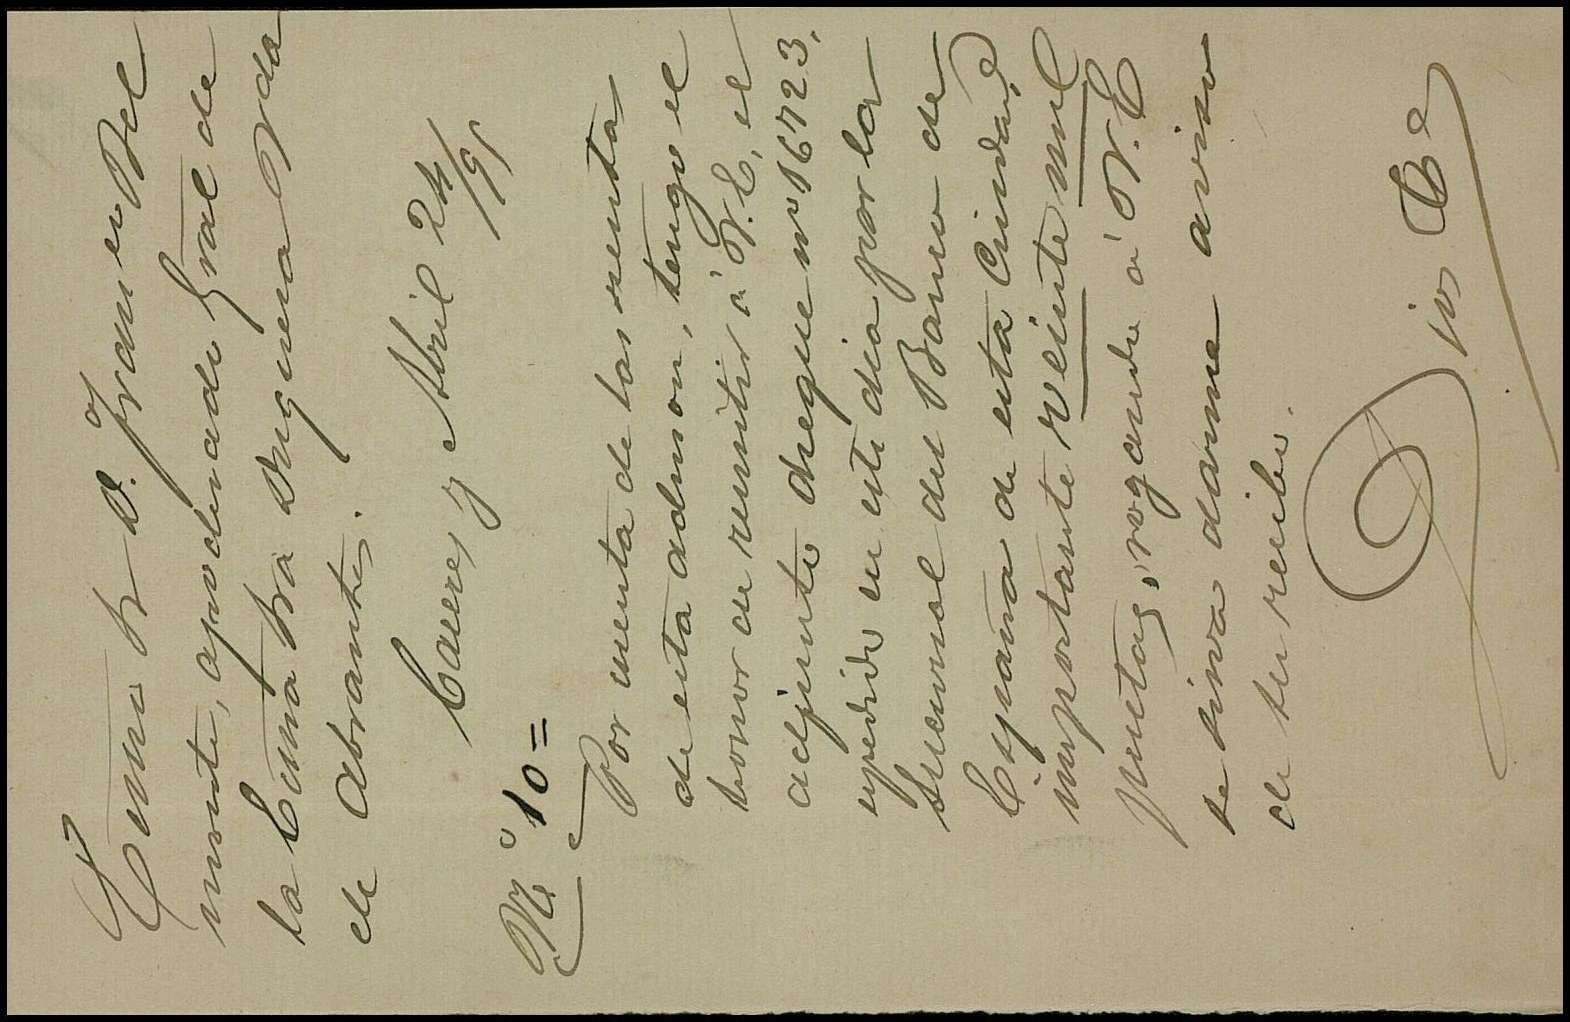 Excmo Sr D. Francº Bel
monte, apoderado Gral de
la Excma Sra Duquesa Vda
de Abrantes.
Caceres y Abril 24/91
Nº 10=
Por cuenta de las rentas
de esta admon, tengo el
honor de remitir á V. E, el
adjunto cheque nº 16723,
expedido en este dia por la
Sucursal del Banco de
España de esta Ciudad
importante veinte mil
pesetas, rogando á V. E
se sirva darme aviso
de su recibo.